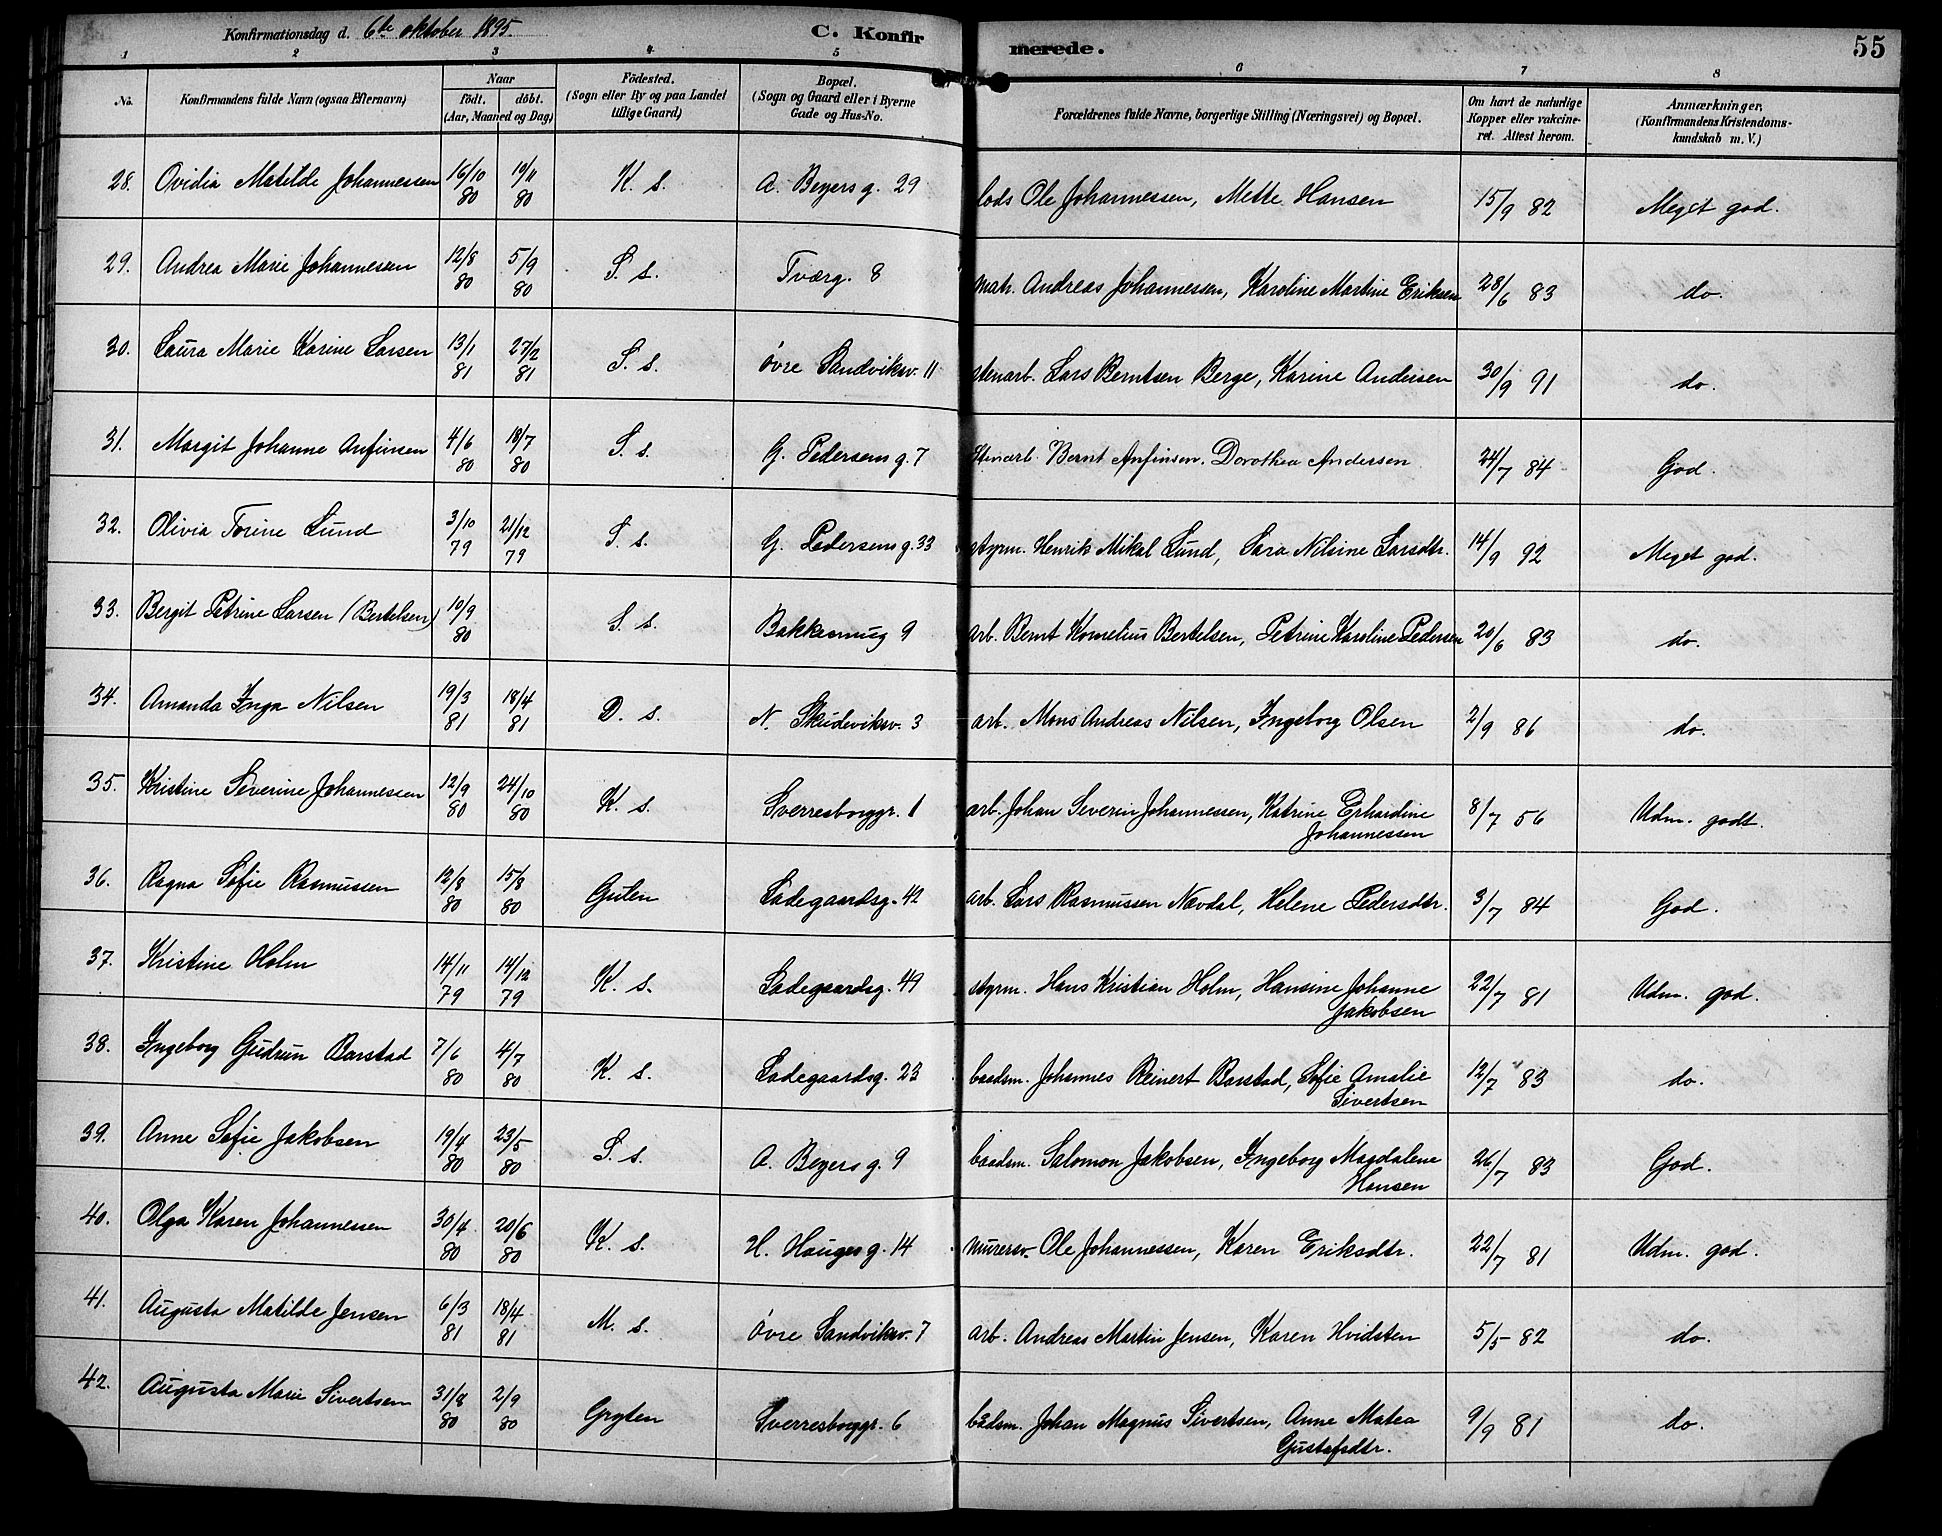 Konfirmationsdag d. 6te oktober 1895. C. Konfirmerede. 55
1 2 3 4 5 6 7 8
No. Konfirmandens fulde Navn (ogsaa Efternavn) Naar födt. döbt. (Aar, Maaned og Dag) Födested. (Sogn eller By og paa Landet tillige Gaard) Bopæl. (Sogn og Gaard eller i Byerne Gade og Hus-No. Forældrenes fulde Navne, borgerlige Stilling (Næringsvei) og Bopæl. Om havt de naturlige Kopper eller vakcineret. Attest herom. Anmærkninger, (Konfirmandens Kristendomskundskab m. V.)
28. Ovidia Matilde Johannessen 16/10 80 19/11 80 K. s. A. Beyers g. 29 lods Ole Johannessen, Mette Hansen 15/9 82 Meget god.
29. Andrea Marie Johannesen 12/8 80 5/9 80 S. s. Tværg. 8 matr. Andreas Johannessen, Karoline Martine Eriksen 28/6 83 do.
30. Laura Marie Karine Larsen 13/1 81 27/2 81 S. s. Øvre Sandviksv. 11 stenarb. Lars Berntsen Berge, Karine Andersen 30/9 91 do.
31. Margit Johanne Anfinsen 4/6 80 18/7 80 S. s. G. Pedersens g. 7 Stenarb. Bernt Anfinsen. Dorothea Andersen 24/7 84 God.
32. Olivia Torine Lund 3/10 79 21/12 79 S. s. G. Pedersens g. 33 styrm. Henrik Mikal Lund, Sara Nilsine Larsdtr. 14/9 92 Meget god.
33. Bergit Petrine Larsen (Bertelsen) 10/9 80 S. s. Bakkesmug 9 arb. Bernt Kornelius Bertelsen, Petrine Karoline Pedersen 20/6 83 do.
34. Amanda Inga Nilsen 19/3 81 18/4 81 D. s. N. Skudeviksv. 3 arb. Mons Andreas Nilsen, Ingeborg Olsen 2/9 86 do.
35. Kristine Severine Johannessen 12/9 80 24/10 80 K. s. Sverresborggr. 1 arb. Johan Severin Johannessen, Katrine Erhardine Johannessen 8/7 56 Udm. godt.
36. Ragna Sofie Rasmussen 12/8 80 15/8 80 Gulen Ladegaardsg. 42 arb. Lars Rasmussen Nævdal, Helene Pedersdtr. 3/7 84 God.
37. Kristine Holm 14/11 79 14/12 79 K. s. Ladegaardsg. 49 styrm. Hans Kristian Holm, Hansine Johanne Jakobsen 22/7 81 Udm. god.
38. Ingeborg Gudrun Barstad 7/6 80 4/7 80 K. s. Ladegaardsg. 23 baadsm. Johannes Reinert Barstad, Sofie Amalie Sivertsen 12/7 83 do.
39. Anne Sofie Jakobsen 19/4 80 23/5 80 S. s. A. Beyers g. 9 baadsm. Salomon Jakobsen, Ingeborg Magdalene Hansen 26/7 83 God.
40. Olga Karen Johannessen 30/4 80 20/6 80 K. s. H. Hauges g. 14 murersv. Ole Johannessen, Karen Eriksdtr. 22/7 81 Udm. god.
41. Augusta Matilde Jensen 6/3 81 18/4 81 M. s. Øvre Sandviksv. 7 arb. Andreas Martin Jensen, Karen Hvidsten 5/5 82 do.
42. Augusta Marie Sivertsen 31/8 80 2/9 80 Gryten Sverresborggr. 6 bådsm. Johan Magnus Sivertsen, Anne Matea Gustafsdtr. 9/9 81 do.